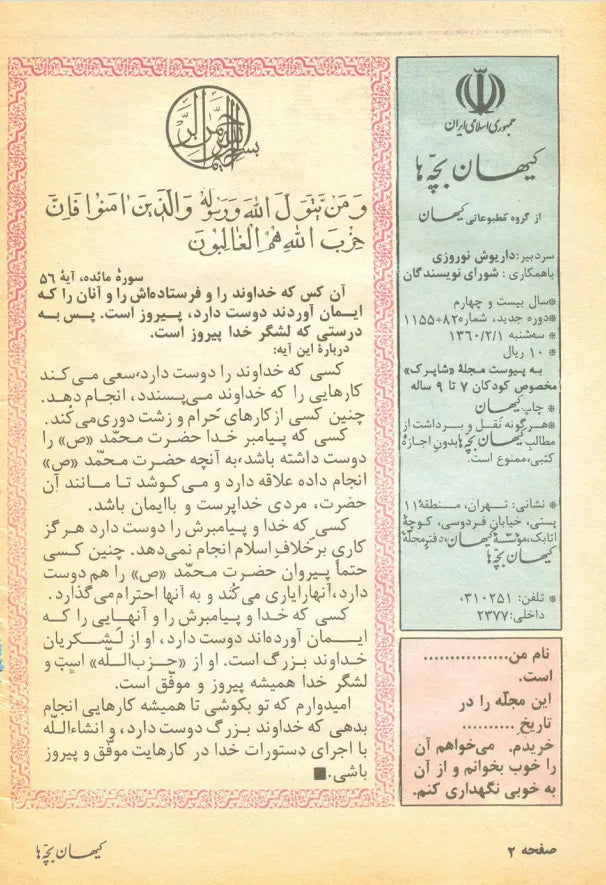 جمهوری اسلامی ایران
کیهان بچّه‌ها
از گروه مطبوعاتی کیهان
سردبیر: داریوش نوروزی
باهمکاری: شورای نویسندگان
*سال بیست و چهارم
*دوره جدید، شماره ۸۲+۱۱۵۵
* سه‌شنبه ۱۳۶۰/۲/۱
* ۱۰ ریال
به پیوست مجلهٔ «شاپرک»
مخصوص کودکان ۷ تا ۹ ساله
* چاپ کیهان
*هرگونه نقل و برداشت از
مطالب کیهان بچّه‌ها بدون اجازهٔ
کتبی، ممنوع است.
* نشانی: تهران، منطقهٔ ۱۱
پستی، خیابان فردوسی، کوچهٔ
اتابک، مؤسّسهٔ کیهان، دفتر مجلّهٔ
کیهان بچّه‌ها
* تلفن: ۳۱۰۲۵۱،
داخلی: ۲۳۷۷
نام من................
است.
این مجلّه را در
تاریخ ..........
خریدم. می‌خواهم آن
را خوب بخوانم و از آن
به خوبی نگهداری کنم.
بسم الله الرحمن الرحیم
وَ مَنْ یَتَوَلَّ اللهَ وَ رَسُولَهُ وَ الَّذینَ امَنُوا فَاِنَّ
حِزْبَ اللهِ هُمُ الْغالِبُونَ
سورهٔ مائده، آیهٔ ۵۶
آن کس که خداوند را و فرستاده‌اش را و آنان را که
ایمان آوردند دوست دارد، پیروز است. پس به
درستی که لشگر خدا پیروز است.
دربارهٔ این آیه:
کسی که خداوند را دوست دارد، سعی می‌کند
کارهایی را که خداوند می‌پسندد، انجام دهد.
چنین کسی از کارهای حرام و زشت دوری می‌کند.
کسی که پیامبر خدا حضرت محمّد «ص» را
دوست داشته باشد، به آنچه حضرت محمّد «ص»
انجام داده علاقه دارد و می‌کوشد تا مانند آن
حضرت، مردی خداپرست و باایمان باشد.
کسی که خدا و پیامبرش را دوست دارد هرگز
کاری برخلاف اسلام انجام نمی‌دهد. چنین کسی
حتماً پیروان حضرت محمّد «ص» را هم دوست
دارد، آنها را یاری می‌کند و به آنها احترام می‌گذارد.
کسی که خدا و پیامبرش را و آنهایی را که
ایمان آورده‌اند دوست دارد، او از لشکریان
خداوند بزرگ است. او از «حزب‌اللّه» است و
لشگر خدا همیشه پیروز و موفّق است.
امیدوارم که تو بکوشی تا همیشه کارهایی انجام
بدهی که خداوند بزرگ دوست دارد، و انشاءاللّه
با اجرای دستورات خدا در کارهایت موفّق و پیروز
باشی.■
صفحه ۲
کیهان بچّه‌ها